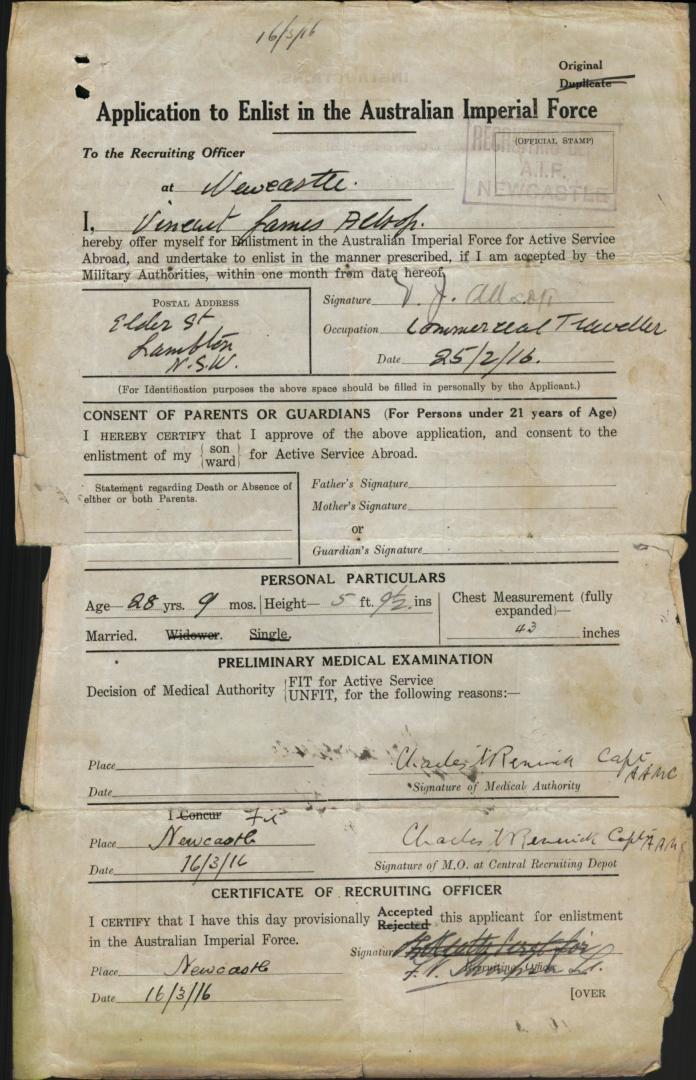 16/3/16
Original
Duplicate
Application to Enlist in the Australian Imperial Force
(OFFICIAL STAMP)
RECRUITING DEPOT
A.I.F.
NEWCASTLE
To the Recruiting Officer
at Newcastle.
I, Vincent James Allsop.
hereby offer myself for Enlistment in the Australian Imperial Force for Active Service
Abroad, and undertake to enlist in the manner prescribed, if I am accepted by the
Military Authorities, within one month from date hereof.
POSTAL ADDRESS
Elder St
Lambton
N.S.W.
Signature V. J. Allsop
Occupation Commercial Traveller
Date 25/2/16.
(For Identification purposes the above space should be filled in personally by the Applicant.)
CONSENT OF PARENTS OR GUARDIANS (For Persons under 21 years of Age)
I HEREBY CERTIFY that I approve of the above application, and consent to the
enlistment of my {son ward} for Active Service Abroad.
Statement regarding Death or Absence of
either or both Parents.
Father's Signature
Mother's Signature
or
Guardian's Signature
PERSONAL PARTICULARS
Age— 28 yrs. 9 mos. Height— 5 ft. 9½ ins
Chest Measurement (fully
expanded)—
43 inches
Married. Widower. Single.
PRELIMINARY MEDICAL EXAMINATION
Decision of Medical Authority {FIT for Active Service
UNFIT, for the following reasons:—
Place
Charles Renwick Capt
AAMC
Date
Signature of Medical Authority
I Concur Fit
Place Newcastle
Charles Renwick Capt AAMC
Date 16/3/16
Signature of M.O. at Central Recruiting Depot
CERTIFICATE OF RECRUITING OFFICER
I CERTIFY that I have this day provisionally Accepted Rejected this applicant for enlistment
in the Australian Imperial Force.
Signature
Place Newcastle
Recruiting Officer
Lt.
Date 16/3/16
[OVER